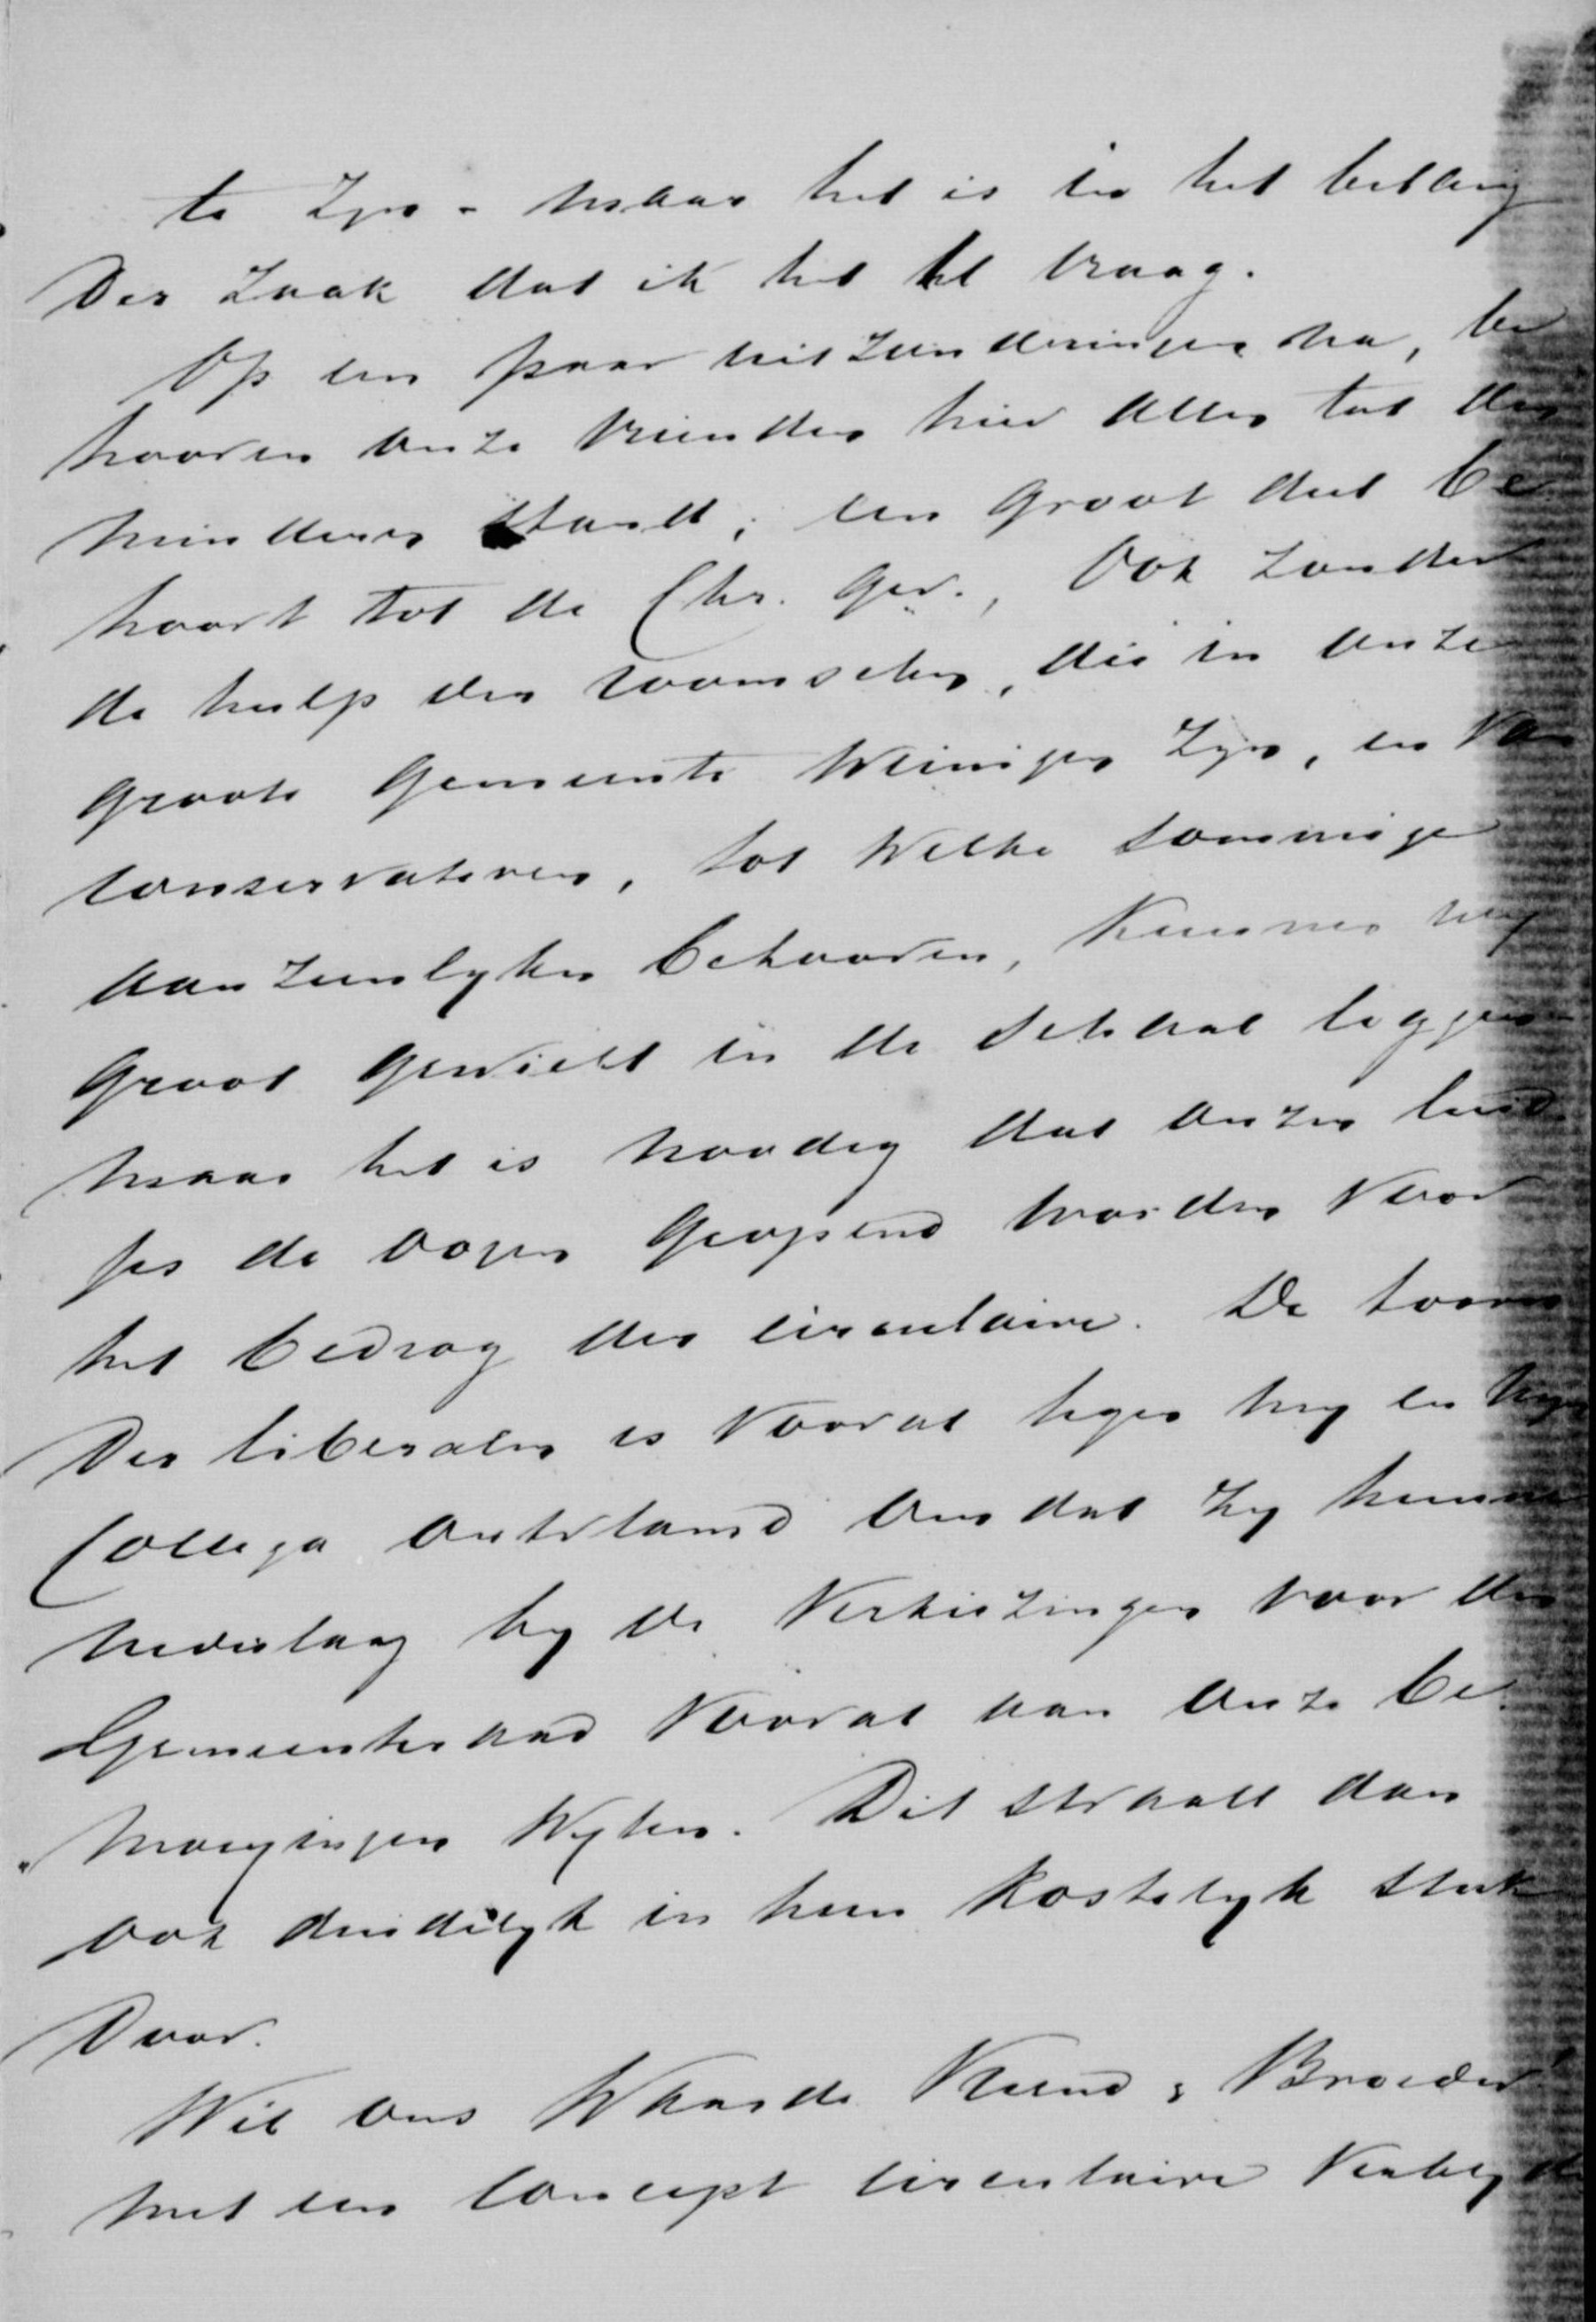 te zyn - maar het is in het belang
der zaak dat ik het vraag.
Op een paar uitzonderingen na, be
hooren onze vrienden hier allen tot den
minderen stand; een groot deel be
hoort tot de Chr. Ger., Ook zonder
de hulp der roomschen, die in onze
groote gemeente weinigen zyn, en
conservatieven, tot welke sommige
aanzienlyken behooren, kunnen wy
groot gewicht in de schaal leggen
maar het is noodig dat onzen luid
jes de oogen geopend worden voor
het bedrog der circulaire. De toorn
der liberalen is vooral tegen my en myn
Collega ontvlamd omdat zy hunne
nederlaag by de verkiezingen voor den
Gemeenteraad vooral aan onze be
moeyingen wyten. Dit straalt dan
ook duidelyk in hun kostelyk stuk
door.
Wil ons Waarde Vriend & Broeder!
met een concept circulaire